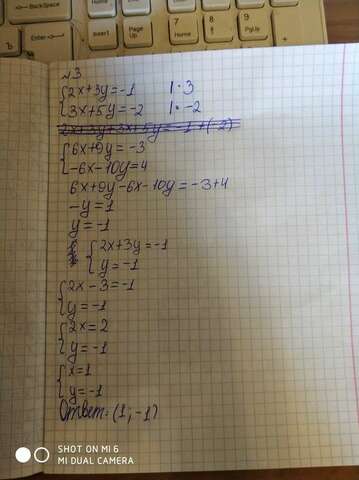 BackSpace
Insert
Page Up
Enter
Delete
End
Page Down
Home
7
PgUp
9
Ъ
№3
{2x+3y=-1 |·3
{3x+5y=-2 |·-2
{6x+9y=-3
{-6x-10y=4
6x+9y-6x-10y=-3+4
-y=1
y=-1
{2x+3y=-1
{y=-1
{2x-3=-1
{y=-1
{2x=2
{y=-1
{x=1
{y=-1
Ответ: (1; -1)
SHOT ON MI 6
MI DUAL CAMERA